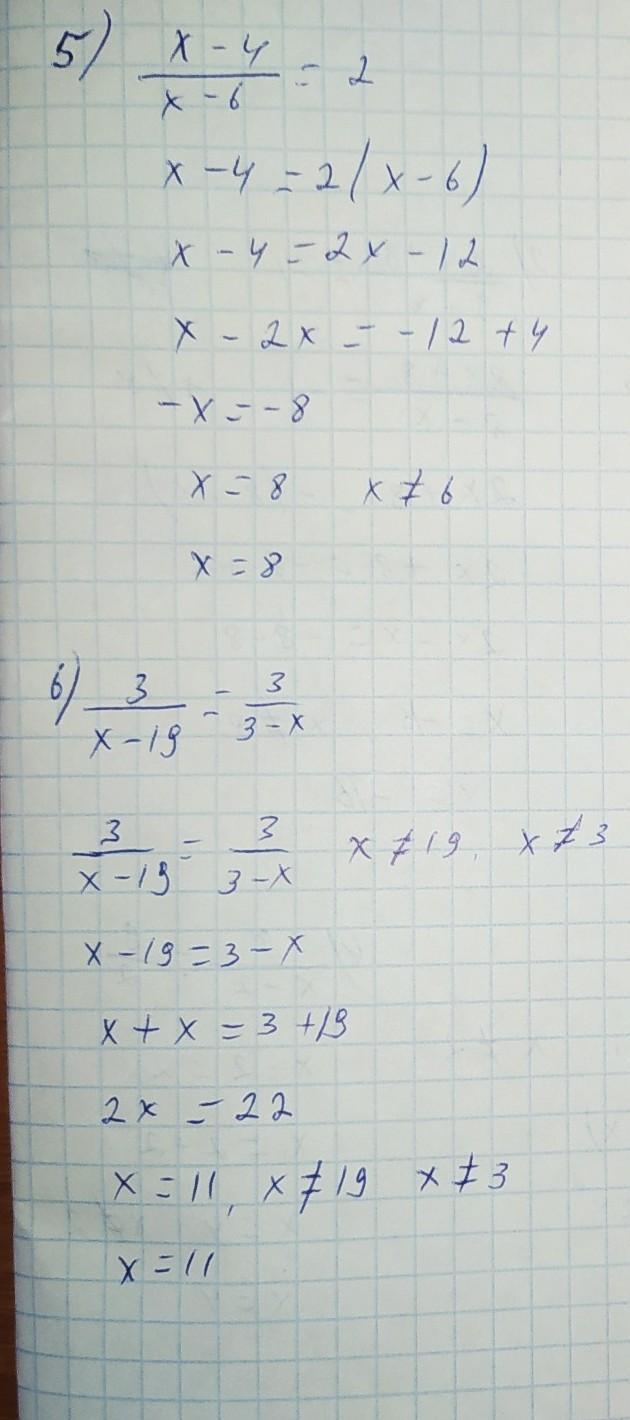 5) (x - 4)/(x - 6) = 2
x - 4 = 2(x - 6)
x - 4 = 2x - 12
x - 2x = -12 + 4
-x = -8
x = 8 x ≠ 6
x = 8
6) 3/(x - 19) = 3/(3 - x)
3/(x - 19) = 3/(3 - x) x ≠ 19, x ≠ 3
x - 19 = 3 - x
x + x = 3 + 19
2x = 22
x = 11, x ≠ 19 x ≠ 3
x = 11